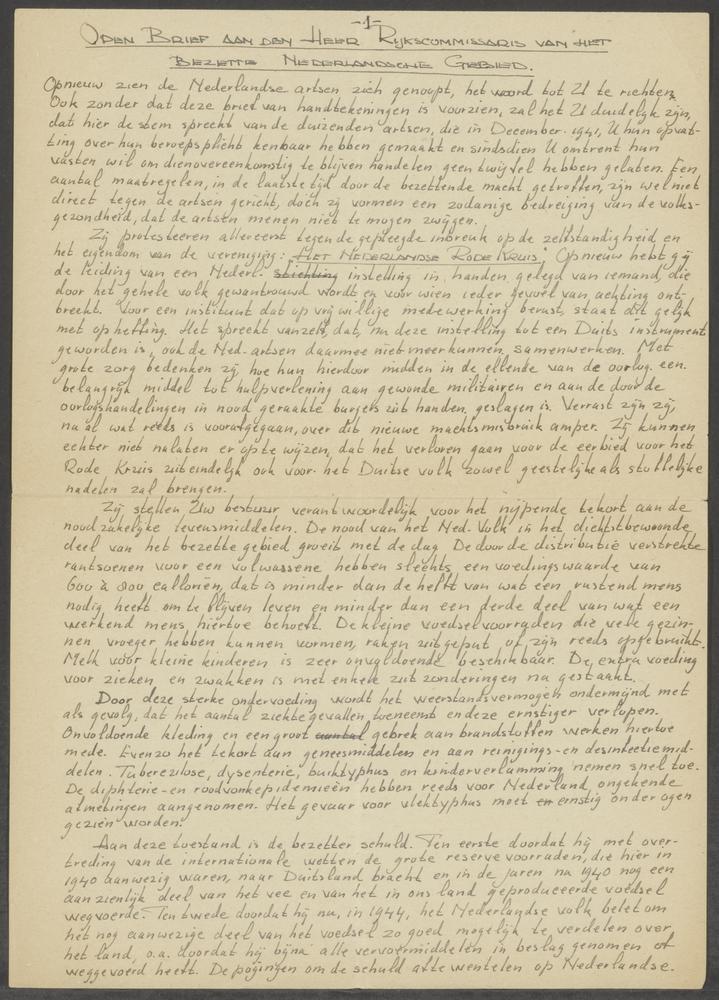 -1-
Open Brief aan den Heer Rijkscommissaris van het
Bezette Nederlandsche Gebied.
Opnieuw zien de Nederlandse artsen zich genoopt, het woord tot U te richten.
Ook zonder dat deze brief van handtekeningen is voorzien, zal het U duidelyk zijn,
dat hier de stem spreekt van de duizenden artsen, die in December 1941, U hun opvat-
ting over hun beroepsplicht kenbaar hebben gemaakt en sindsdien U omtrent hun
vasten wil om dienovereenkomstig te blijven handelen geen twijfel hebben gelaten. Een
aantal maatregelen, in de laatste tijd door de bezettende macht getroffen, zijn wel niet
direct tegen de artsen gericht, doch zij vormen een zodanige bedreiging van de volks-
gezondheid, dat de artsen menen niet te mogen zwijgen.
Zij protesteeren allereerst tegen de gepleegde inbreuk op de zelfstandigheid en
het eigendom van de vereniging: "Het Nederlandse Rode Kruis". Opnieuw hebt gij
de leiding van een Nederl. stichting instelling in handen gelegd van iemand, die
door het gehele volk gewantrouwd wordt en voor wien ieder gevoel van achting ont-
breekt. Voor een instituut dat op vrijwillige medewerking berust, staat dit gelijk
met opheffing. Het spreekt vanzelf, dat, nu deze instelling tot een Duits instrument
geworden is, ook de Ned. artsen daarmee niet meer kunnen samenwerken. Met
grote zorg bedenken zij, hoe hun hierdoor midden in de ellende van de oorlog een
belangrijk middel tot hulpverlening aan gewonde militairen en aan de door de
oorlogshandelingen in nood geraakte burgers uit handen geslagen is. Verrast zijn zij,
na al wat reeds is voorafgegaan, over dit nieuwe machtsmisbruik amper. Zij kunnen
echter niet nalaten er op te wijzen, dat het verloren gaan voor de eerbied voor het
Rode Kruis uiteindelijk ook voor het Duitse volk zowel geestelijke als stoffelijke
nadelen zal brengen.
Zij stellen Uw bestuur verantwoordelijk voor het nijpende tekort aan de
noodzakelijke levensmiddelen. De nood van het Ned. Volk in het dichtstbewoonde
deel van het bezette gebied groeit met de dag. De door de distributie verstrekte
rantsoenen voor een volwassene hebben slechts een voedingswaarde van
600 à 800 calloriën, dat is minder dan de helft van wat een rustend mens
nodig heeft om te blijven leven en minder dan een derde deel van wat een
werkend mens hiertoe behoeft. De kleine voedselvoorraden die vele gezin-
nen vroeger hebben kunnen vormen, raken uitgeput of zijn reeds opgebruikt.
Melk voor kleine kinderen is zeer onvoldoende beschikbaar. De extra voeding
voor zieken en zwakken is met enkele uitzonderingen na gestaakt.
Door deze sterke ondervoeding wordt het weerstandsvermogen ondermijnd met
als gevolg, dat het aantal ziektegevallen toeneemt en deze ernstiger verlopen.
Onvoldoende kleding en een groot aantal gebrek aan brandstoffen werken hiertoe
mede. Evenzo het tekort aan geneesmiddelen en aan reinigings- en desinfectiemid-
delen. Tuberculose, dysenterie, buiktyphus en kinderverlamming nemen snel toe.
De diphterie- en roodvonkepidemieën hebben reeds voor Nederland ongekende
afmetingen aangenomen. Het gevaar voor vlektyphus moet en ernstig onder ogen
gezien worden.
Aan deze toestand is de bezetter schuld. Ten eerste doordat hij met over-
treding van de internationale wetten de grote reservevoorraden, die hier in
1940 aanwezig waren, naar Duitsland bracht en in de jaren na 1940 nog een
aanzienlijk deel van het vee en van het in ons land geproduceerde voedsel
wegvoerde. Ten tweede doordat hij nu, in 1944, het Nederlandse volk belet om
het nog aanwezige deel van het voedsel zo goed mogelijk te verdelen over
het land, o.a. doordat hij bijna alle vervoermiddelen in beslag genomen of
weggevoerd heeft. De pogingen om de schuld af te wentelen op Nederlandse.